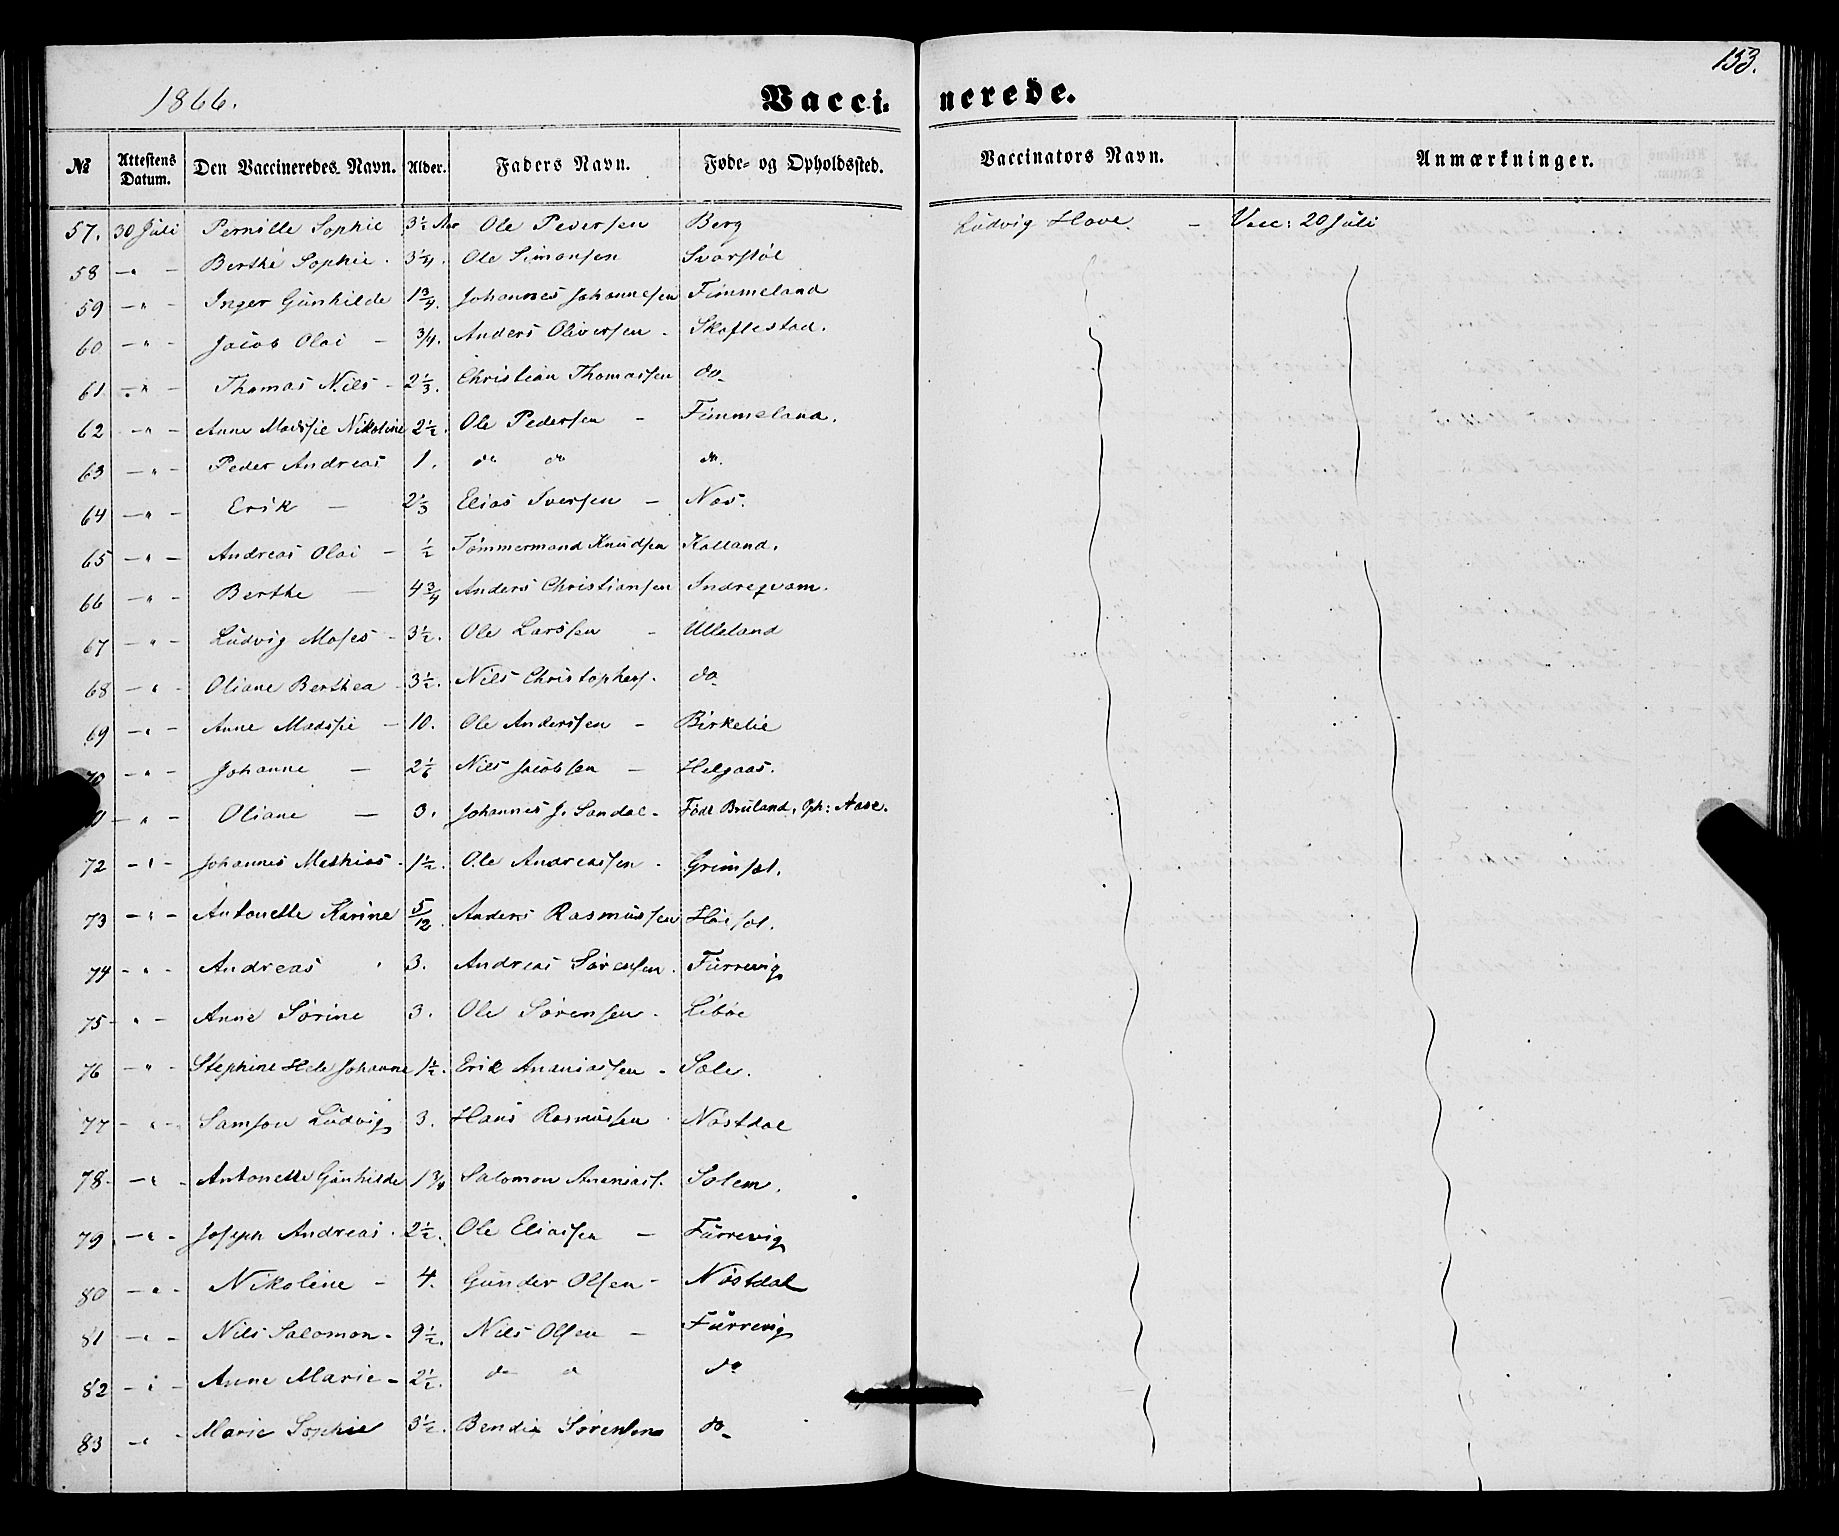 153.
1866. Vaccinerede.
№ Attestens Datum. Den Vaccineredes Navn. Alder. Faders Navn. Føde- og Opholdssted. Vaccinators Navn. Anmærkninger.
57. 30 Juli Pernille Sophie 3½ Aar Ole Pedersen Berg Ludvig Hove. – Vacc: 20 Juli
58 – " – Berthe Sophie. Ole Simonsen Svarstøl
59 – " – Inger Gunhilde 1¾. Johannes Johannesen Fimmeland
60 – " – Jacob Olai – ¾. Anders Oliversen – Skaflestad.
61 – " – Thomas Nils – 2⅓. Christian Thomassen do.
62 – " – Anne Madssie Nikoline 2½. Ole Pedersen – Fimmeland.
63 – " – Peder Andreas 1. do do do.
64 – " – Erik – 2⅓ Elias Iversen –
65 – " – Andreas Olai – ½ Tømmermand Knudsen Kalland.
66 – " – Berthe – 4¾ Anders Christiansen Indreqvam.
67 – " – Ludvig Moses – 3½. Ole Larssen – Ulleland
68 – " – Oliane Berthea – 3½. Nils Christophers. do
69 – " – Anne Madssie – 10. Ole Anderssen – Birkelie
70 – " – Johanne – 2⅙ Nils Jacobsen – Helgaas.
– " – Oliane – 3. Johannes J. Sandal – Født Bruland, Oph: Aase.
72 – " – Johannes Mathias. 1½. Ole Andreassen – Grimsøl.
73 – " – Antonette Karine 5/12. Anders Rasmussen Høisøl.
74 – " – Andreas 3. Andreas Sørensen. Furrevig
75 – " – Anne Sørine 3. Ole Sørensen – Libøe
76 – " – Stephine Hele Johanne 1½. Erik Ananiassen – Sole.
77 – " – Samson Ludvig 3. Hans Rasmussen Nøstdal
78 – " – Antonette Gunhilde 1¾ Salomon Ananiass. Solem.
79 – " – Joseph Andreas. 2½. Ole Eliassen – Furrevig
80 – " – Nikoline – 4. Gunder Olsen – Nøstdal
81 – " – Nils Salomon – 9½. Nils Olsen – Furrevig
82 – " – Anne Marie – 2½. do do do
83 – " – Marie Sophie 3½. Bendix Sørensen do